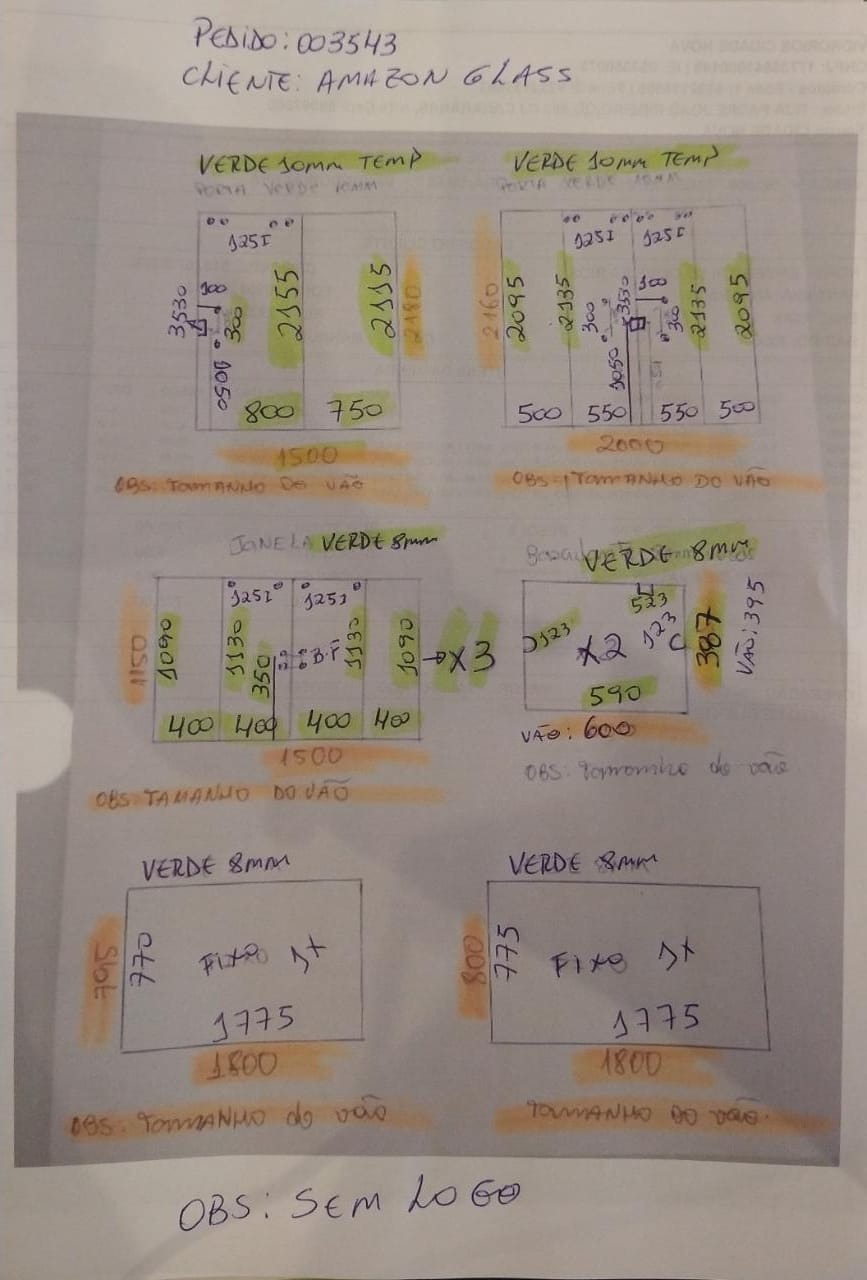 PEDIDO: 003543
CLIENTE: AMAZON GLASS
VERDE 10mm TEMP
PORTA VERDE 10MM
125I
3530
100
300
1050
2155
2115
2180
800
750
1500
OBS: TAMANHO DO VÃO
VERDE 10mm TEMP
PORTA VERDE 10MM
125I
125I
2160
2095
2135
300
3530
100
300
2135
2095
1050
500
550
550
500
2000
OBS: TAMANHO DO VÃO
JANELA VERDE 8mm
125I
125I
1150
1090
1130
350
B.F
1130
1090
x3
400
400
400
400
1500
OBS: TAMANHO DO VÃO
VERDE 8mm
523
123
x2
123
387
VÃO: 395
590
VÃO: 600
OBS: Tamanho do vão
VERDE 8mm
795
770
Fixo 1x
1775
1800
OBS: TAMANHO do vão
VERDE 8mm
800
775
Fixo 1x
1775
1800
TAMANHO DO VÃO.
OBS: SEM LOGO